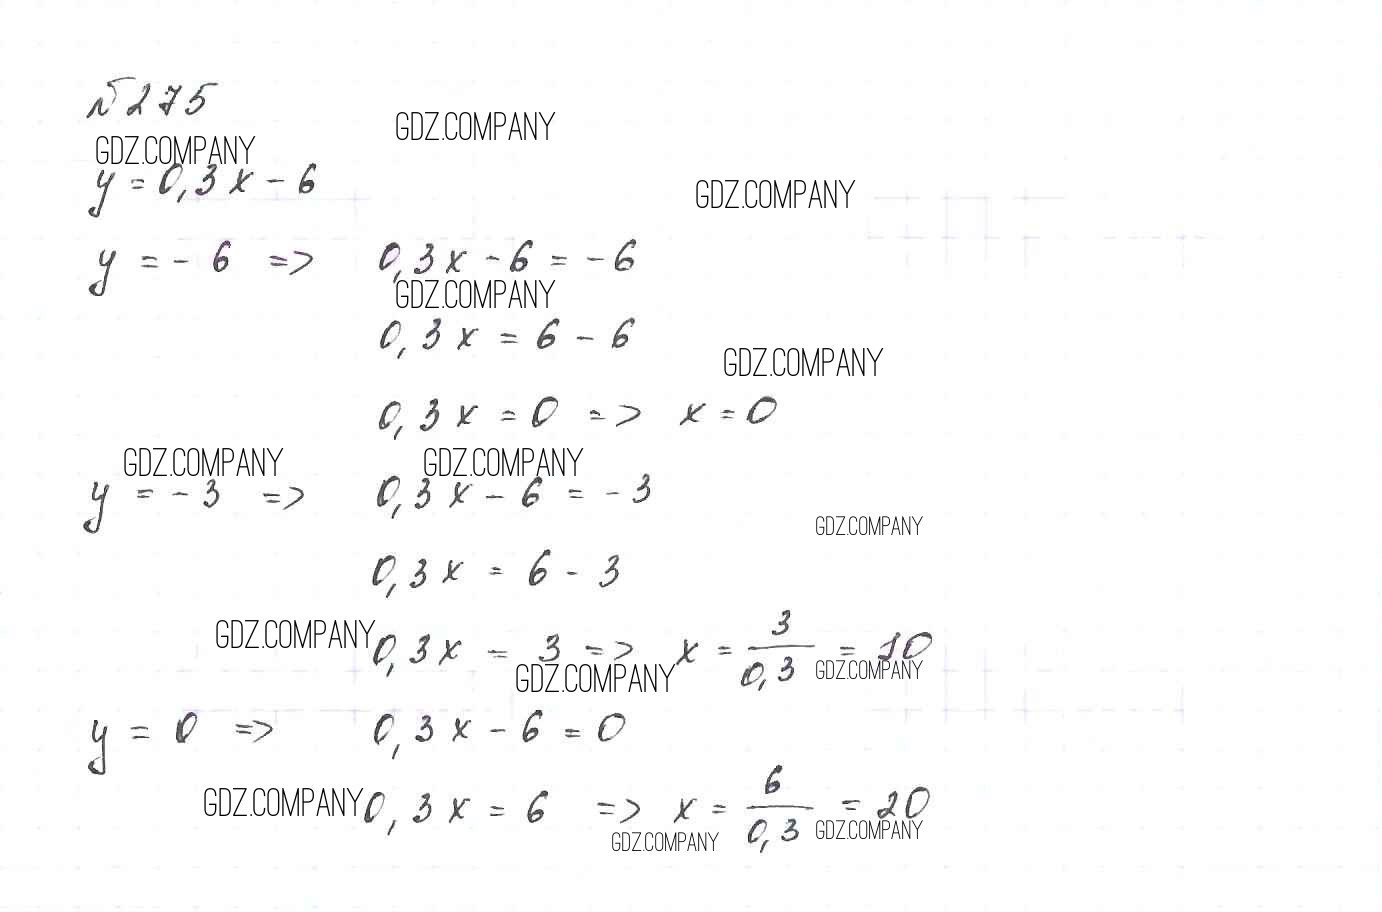 № 275
GDZ.COMPANY
GDZ.COMPANY
y = 0,3x - 6
GDZ.COMPANY
y = - 6 => 0,3x - 6 = - 6
GDZ.COMPANY
0,3x = 6 - 6
GDZ.COMPANY
0,3x = 0 => x = 0
GDZ.COMPANY GDZ.COMPANY
y = - 3 => 0,3x - 6 = - 3
GDZ.COMPANY
0,3x = 6 - 3
GDZ.COMPANY
0,3x = 3 => x = 3/0,3 = 10
GDZ.COMPANY GDZ.COMPANY
y = 0 => 0,3x - 6 = 0
GDZ.COMPANY
0,3x = 6 => x = 6/0,3 = 20
GDZ.COMPANY GDZ.COMPANY